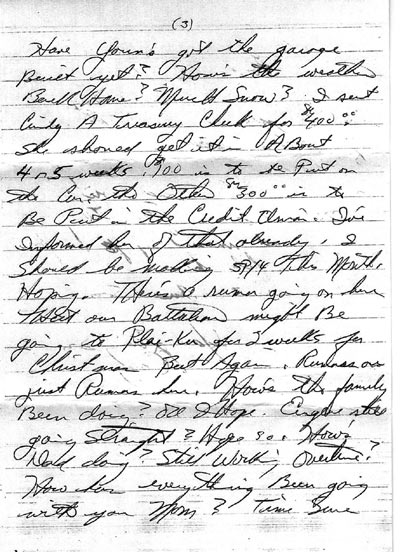 (3)
Have Youn's got the garage
Built yet? How's the weather
Back Home? Much Snow? I sent
Cindy A Treasury Check for $400.00.
She should get it in ABout
4 or 5 weeks. $100 is to be Put on
the Car, the Other $300.00 is to
Be Put in the Credit Union. I've
Informed her of that already. I
Should be making SP/4 This Month.
Hoping. There's a rumor going on here
that our Battalion might Be
going to Plei-Ku for 2 weeks for
Christmas But Again. Rumors are
just Rumors here. How's the family
Been doing? I Hope. Eugene still
going Straight? Hope so. How's
Dad doing? Still Working Overtime?
How has everything Been going
with you Mom? Time Sure